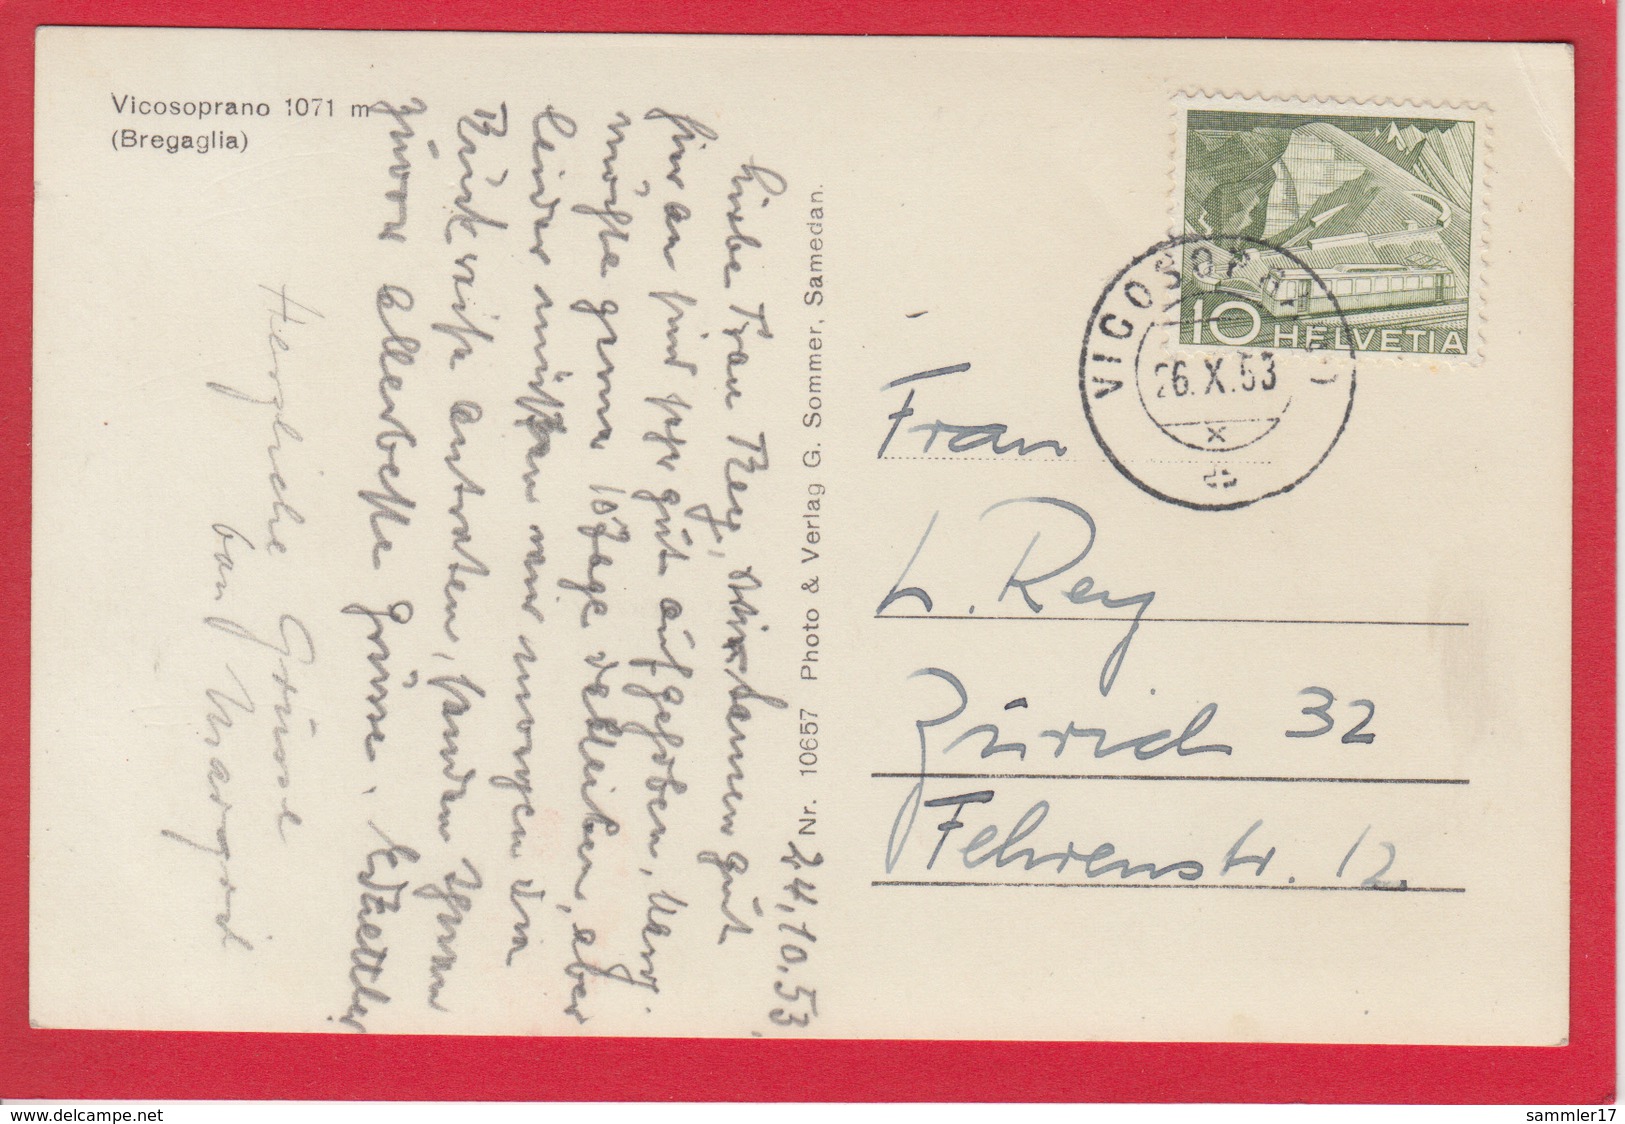 Vicosoprano 1071 m
(Bregaglia)
24.10.53
Liebe Frau Rey, wir kamen gut
hier an sind sehr gut aufgehoben, Marg.
möchte gerne 10 Tage verbleiben, aber
leider müssen wir morgen die
Rückreise antreten, senden Ihnen
zuvor allerbeste Grüsse.
Herzliche Grüsse
von Margrit
Nr. 10657 Photo & Verlag G. Sommer, Samedan.
10 HELVETIA
VICOSOPRANO
26.X.53
Frau
L. Rey
Zürich 32
Fehrenstr. 12.
www.delcampe.net
sammler17